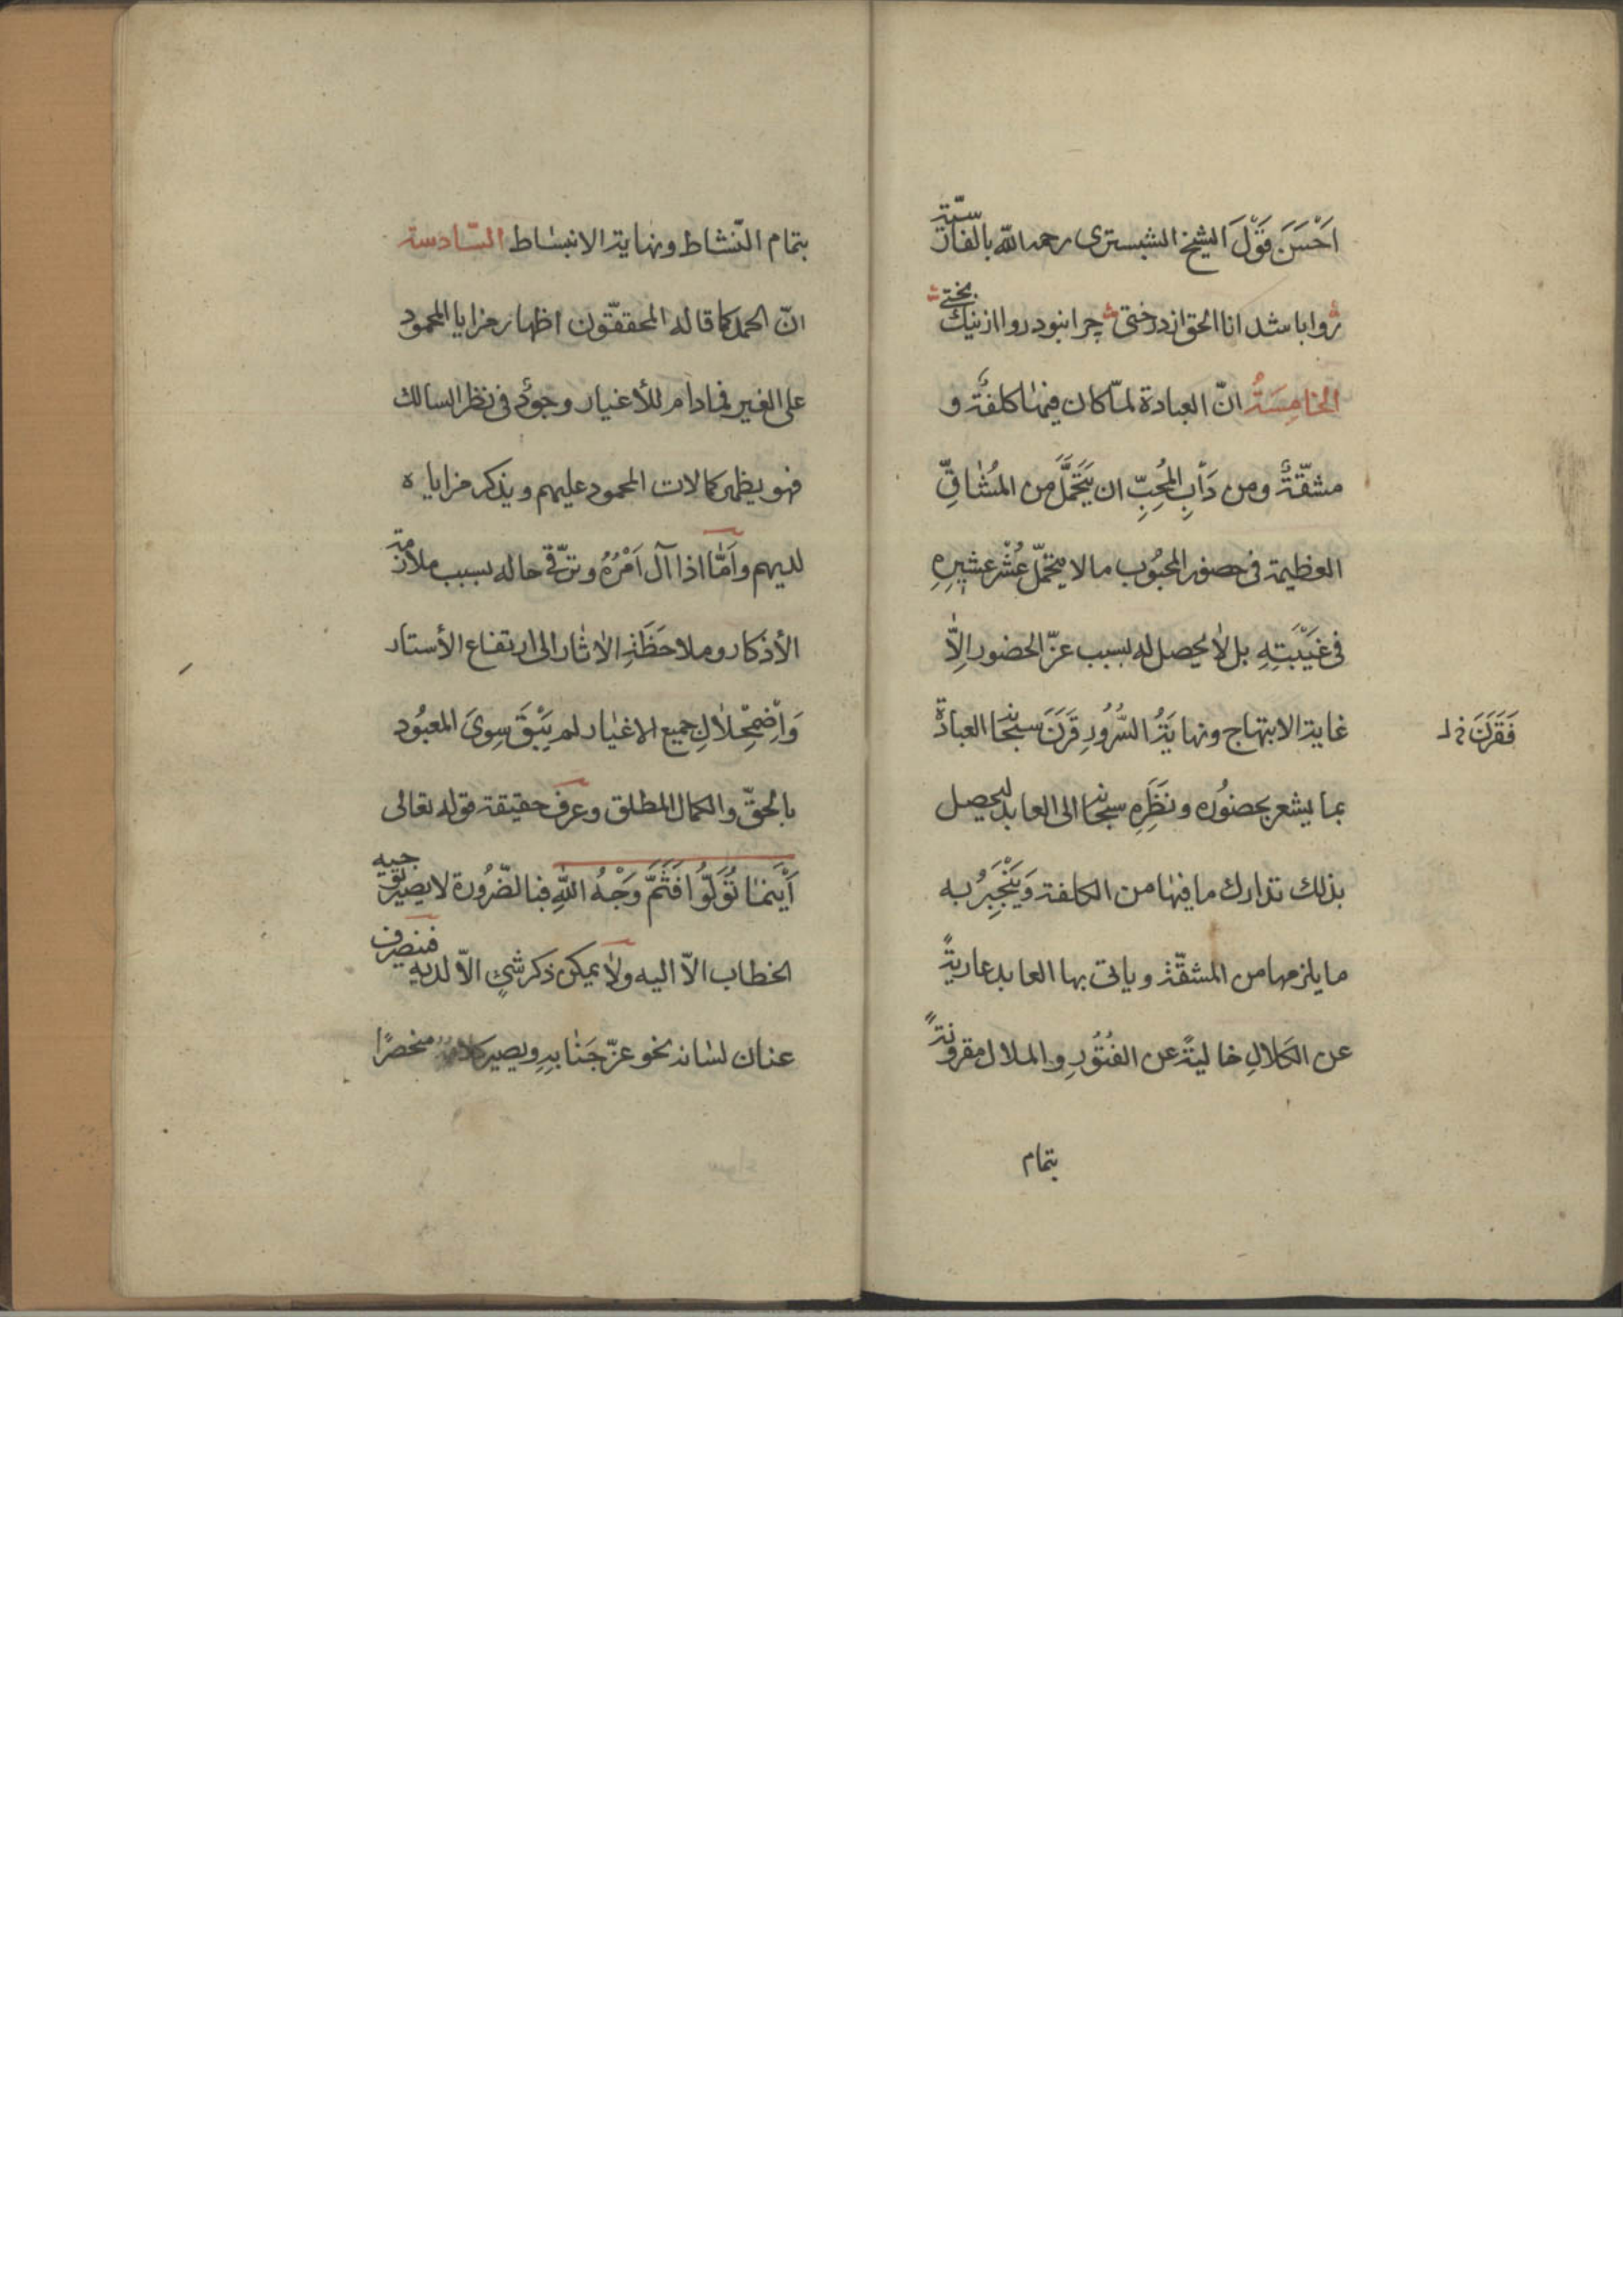 اَحْسَنَ قَوْلَ الشيخ الشبستری رحمه اللّه بالفارسیّة
روا باشد انا الحق از درختی چرا نبود روا از نیک بختی
الخامِسَةُ انّ العبادة لمّا كان فيها كلفةٌ و
مشقّةٌ ومن دَأبِ المُحِبِّ ان يَتَحَمَّلَ من المُشٰاقِّ
العظيمة فى حضور المحبُوب ما لا يتحمّل عُشْر عشيرِهِ
فى غَيْبَتِهِ بل لٰا يحصل له بسبب عزّ الحضور اِلاّٰ
غاية الابتهاج ونهايَةُ السُّرُورِ قَرَنَ سبحانه العبادة
فَقَرَنَ خ ل
بما يشعر بحضوُره ونَظَرِهِ سبحانه الى العابد ليحصل
بذلك تدارك ما فيهٰا من الكلفة وَيَنْجَبِرُ به
ما يلزمها من المشقّة وياتى بها العابد عاريةً
عن الكَلالِ خاليةً عن الفُتُورِ والملال مقرونةً
بتمام
بتمام النّشاط ونهاية الانبسٰاط السّادسة
انّ الحمد كما قاله المحققّون اظهار مزايا المحمود
على الغير فمادام للأغيار وجودٌ فى نظر السالك
فهو يظهر كمالات المحمود عليهم ويذكر مزاياه
لديهم وامّٰا اذا آل اَمْرُهُ وترقّى حاله بسبب ملازمة
الأذكار وملاحَظَةِ الاٰثار الى ارتفاع الأستار
وَاْضمِحْلٰالِ جميع الاغيٰار لم يَبْقَ سِوىَ المعبُود
بالحقّ والكمال المطلق وعرف حقيقة قوله تعالى
اَيْنَمٰا تُوَلّوُا فَثَمَّ وَجْهُ اللّٰهِ فبالضّرُورة لا يصير توجيه
الخطاب الاّ اليه ولٰا يمكن ذكر شىءٍ الاّ لديه فينصرف
عنان لسٰانه نحو عزّ جَنٰابِهِ ويصير كلامه منحصرًا